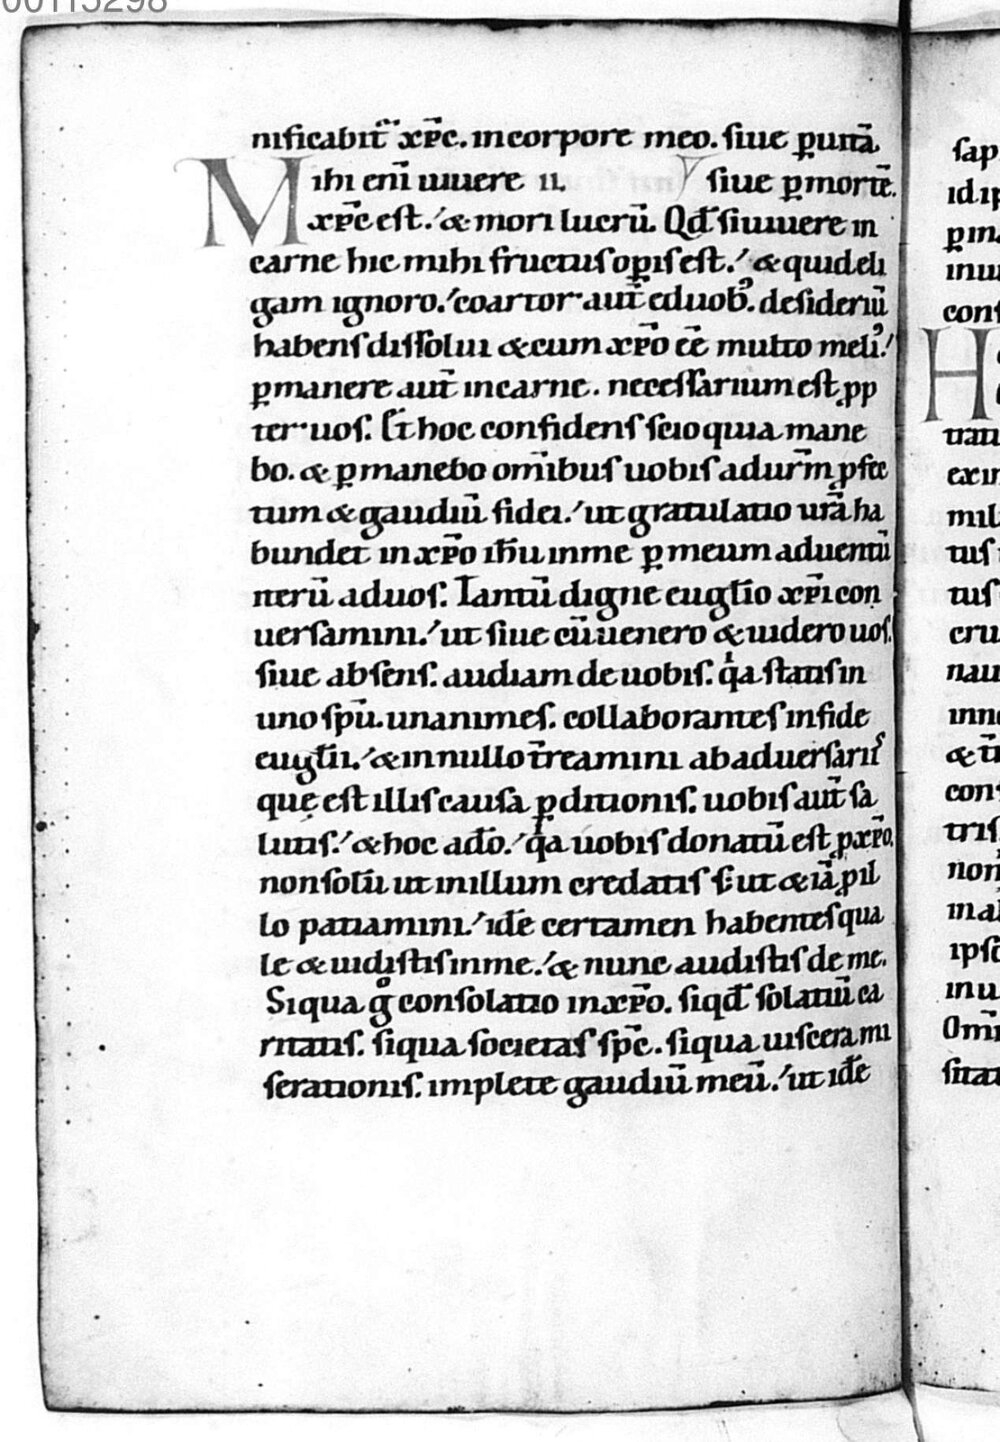 00115298
nificabit᷑ xp̄c. incorpore meo. siue ꝑuitā
Mihi eni̅ uiuere .ii. siue ꝑmortē.
xp̄c est.' & mori lucrū. Qđ siuiuere in
carne hic mihi fructus oꝑis est.' & quid eli
gam ignoro.' coartor aut̄ eduob᷒. desideriū
habens dissolui & cum xp̄o ēē multo meli᷒.'
ꝑmanere aut̄ incarne. necessarium est ꝓp
ter uos. Et hoc confidens scio quia mane
bo. & ꝑmanebo omībus uobis adur̄m ꝓfec
tum & gaudiū fidei.' ut gratulatio ur̄a ha
bundet in xp̄o ih̄u inme ꝑ meum aduentū
iterū aduos. Tantū digne eugl̄io xp̄i con
uersamini.' ut siue cū uenero & uidero uos.
siue absens. audiam de uobis. qͥa statis in
uno sp̄u. unanimes. collaborantes infide
eugl̄ii.' & innullo t̄reamini ab aduersariis
quę est illis causa ꝑditionis. uobis aut̄ sa
lutis.' & hoc ad̄o.' qͥa uobis donatū est ꝓ xp̄o.
non solū ut inillum credatis s; ut & iā ꝓ il
lo patiamini.' idē certamen habentes qua
le & uidistis inme.' & nunc audistis de me.
Siqua gͦ consolatio inxp̄o. siqđ solatiū ca
ritatis. siqua societas sp̄c. siqua uiscera mi
serationis. implete gaudiū meū.' ut idē
sap
id ip
con
H
trati
mil
tus
tus
cru
nau
con
tris
non
mal
Om̄
sitat